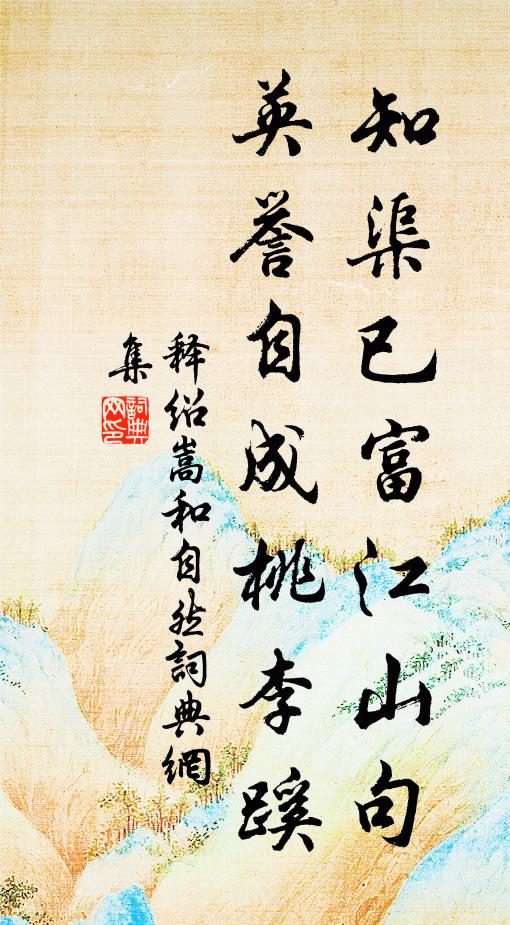 知渠已富江山句
英誉自成桃李蹊
释绍嵩和自然詞典網
集
詞典網印